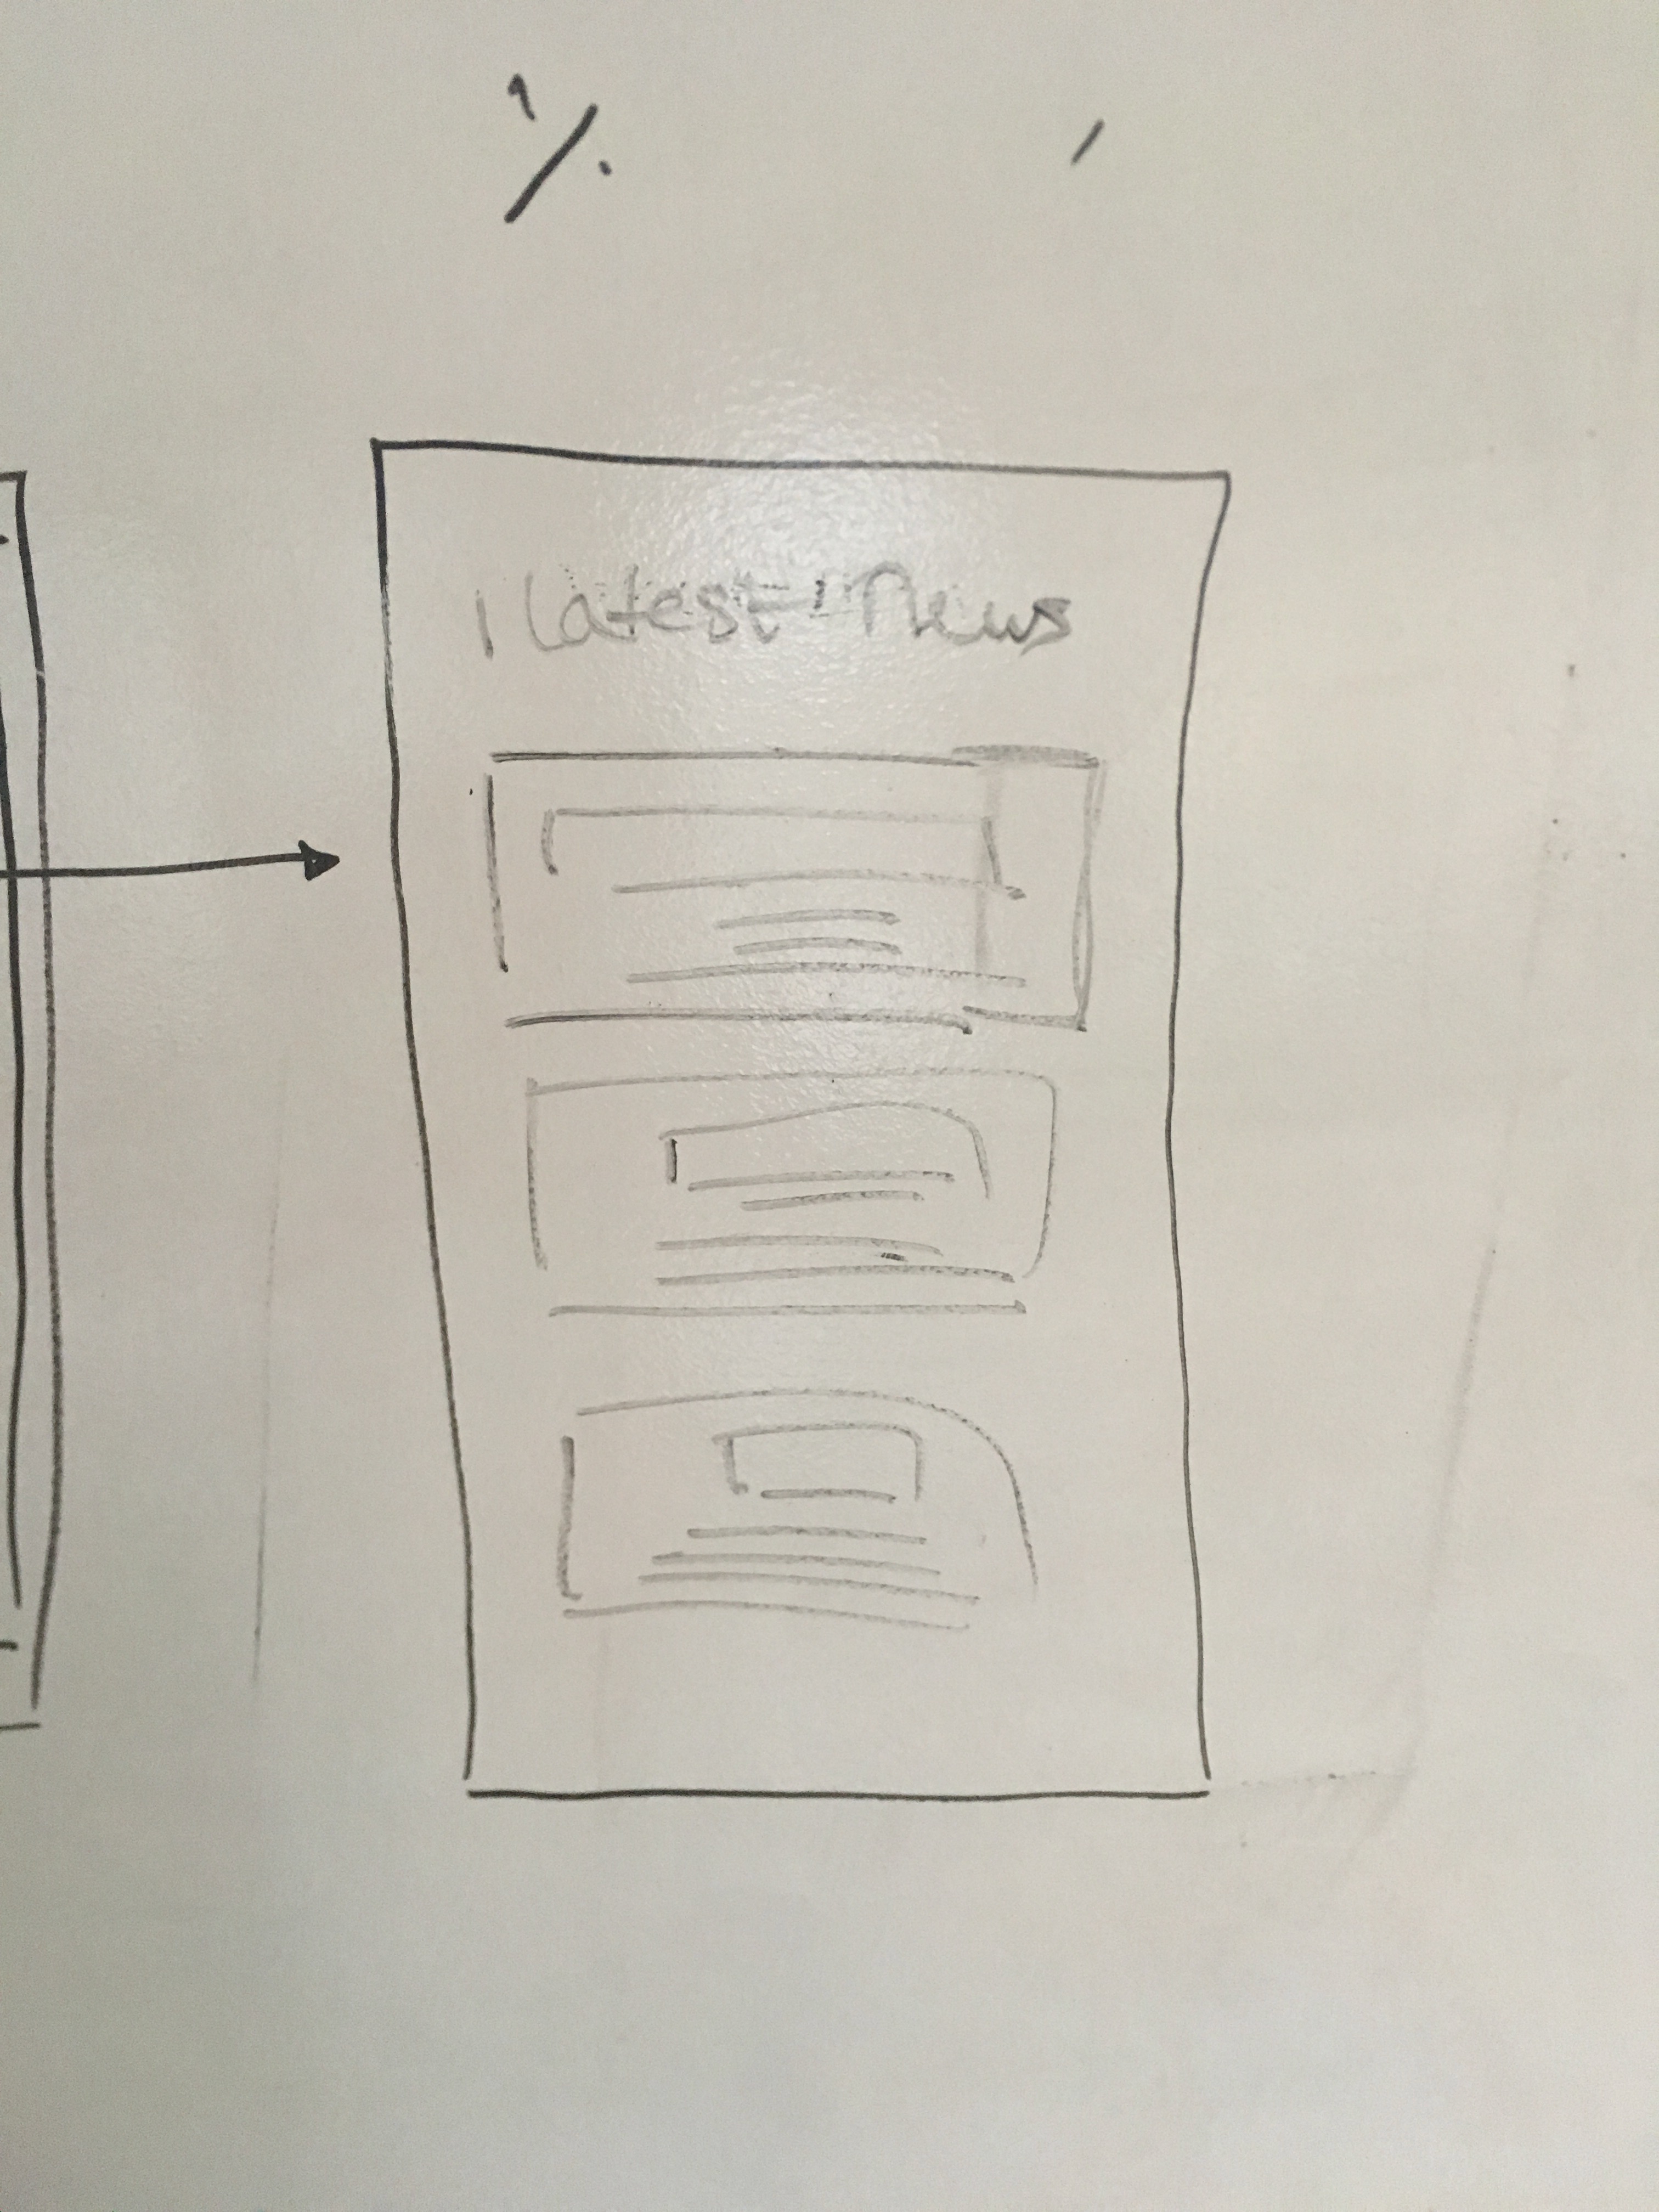 %
latest News